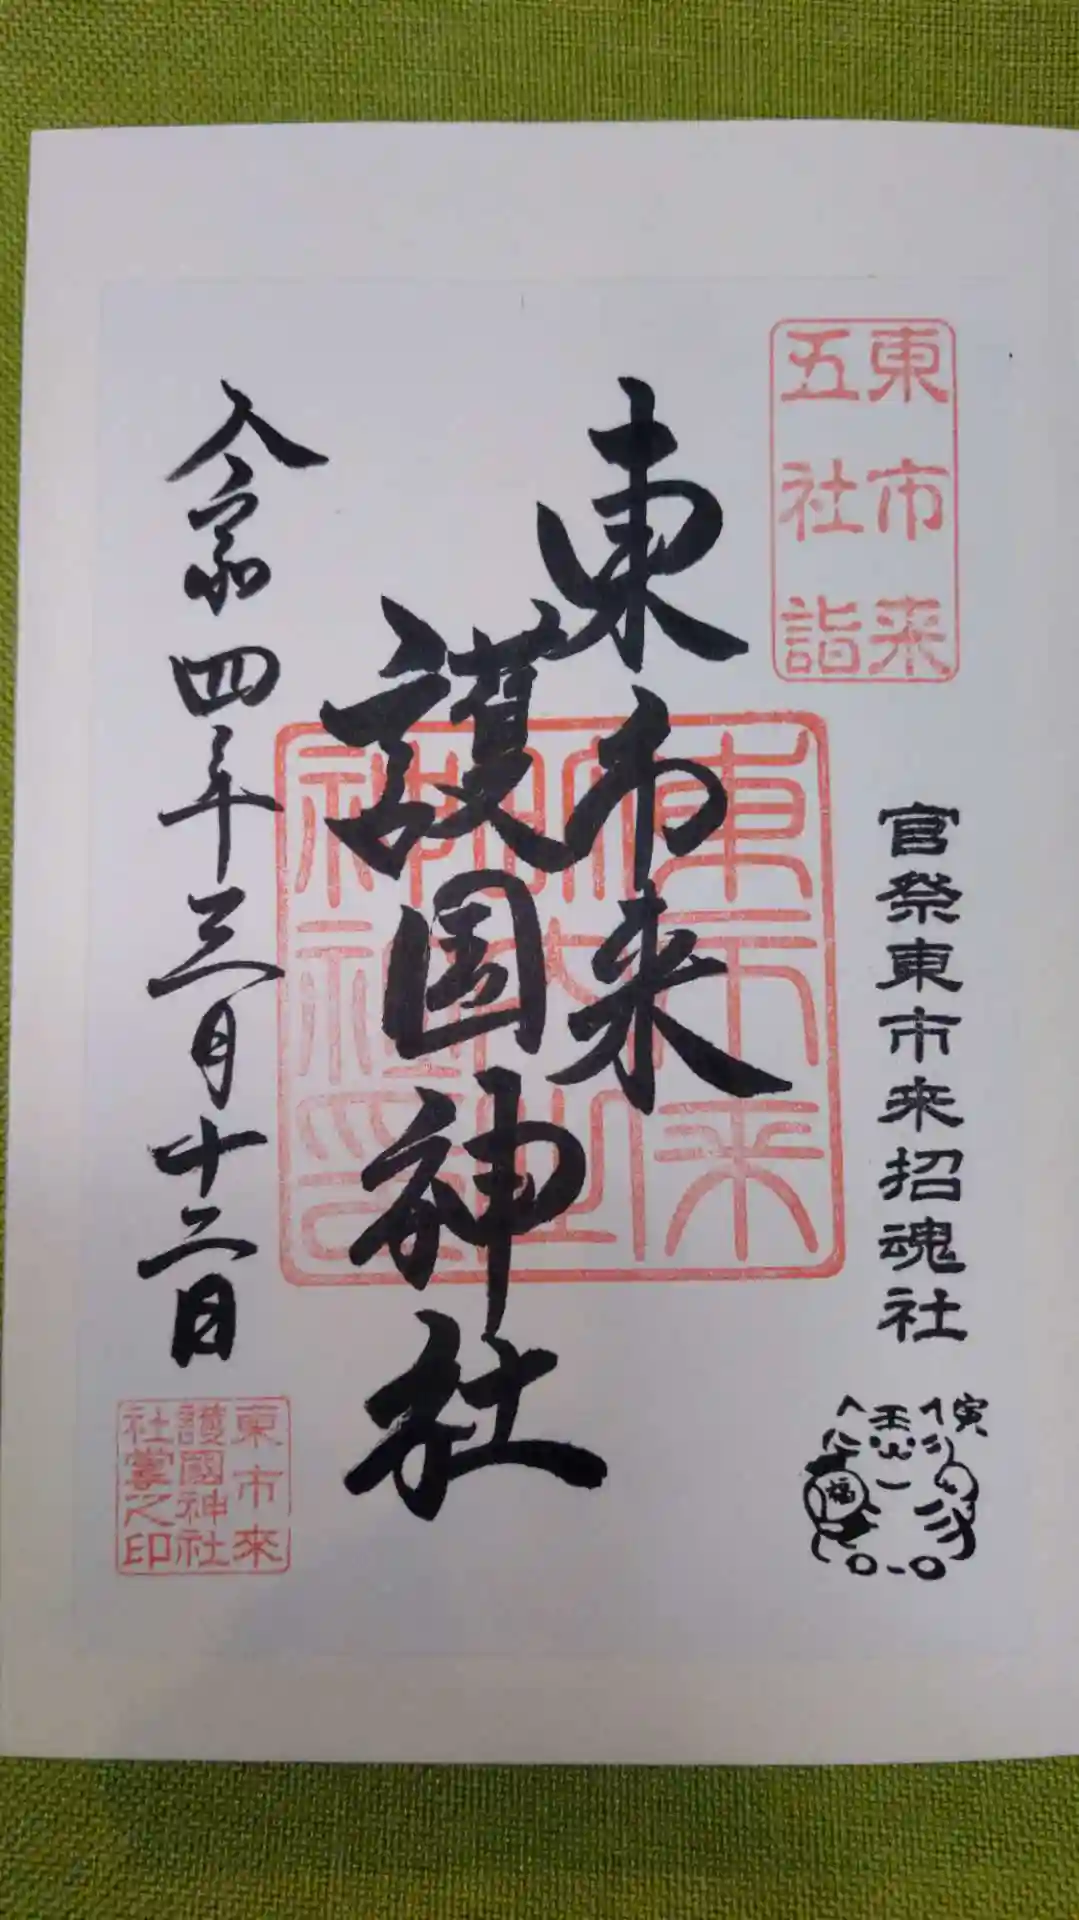 東市来
五社詣
官祭東市来招魂社
寅
王
福
東市来
護国神社
令和四年三月十二日
東市來
護國神社
社掌之印